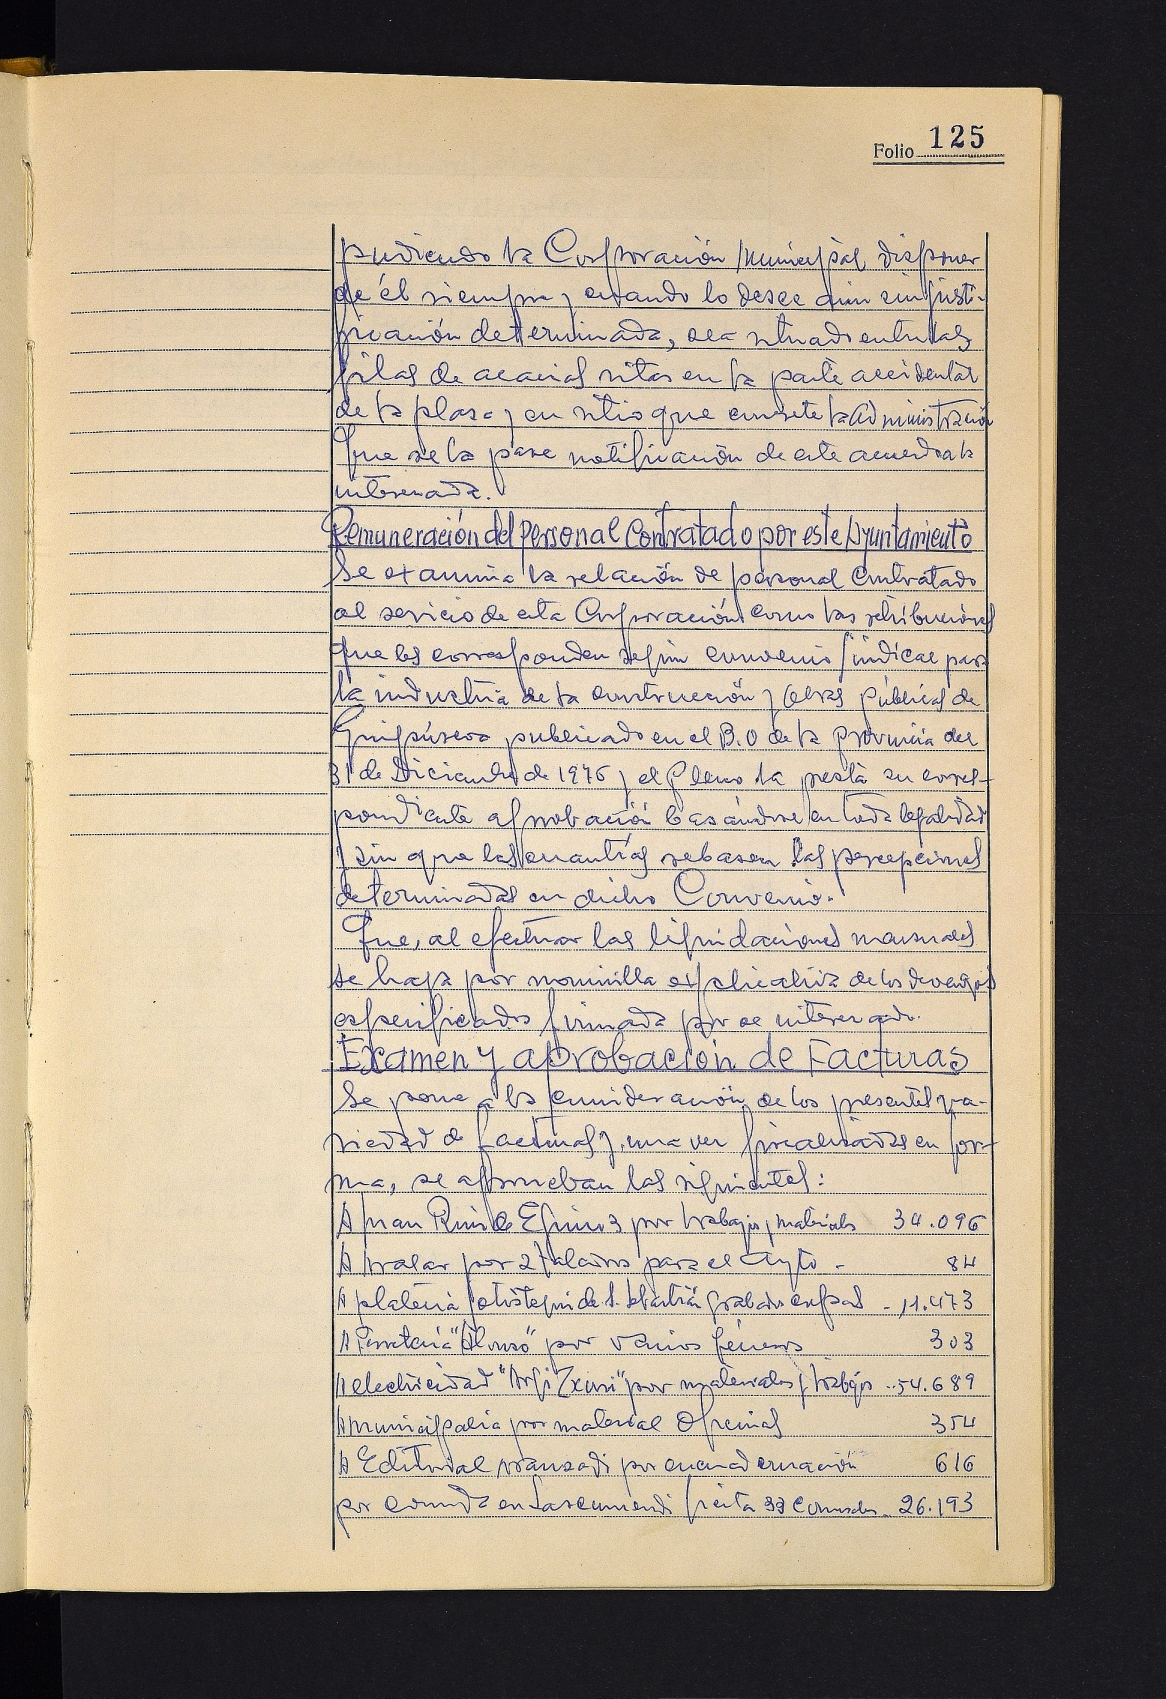 Folio 125
pudiendo la Corporación Municipal disponer
de él siempre y cuando lo desee aún sin justi-
ficación determinada, sea situado entre las
filas de acacias sitas en la parte accidental
de la plaza y en sitio que concrete la administración
Que se la pase notificación de este acuerdo a la
interesada.
Remuneración del personal contratado por este Ayuntamiento
Se examina la relación de personal contratado
al servicio de esta Corporación como las retribuciones
que les corresponden según convenio sindical para
la industria de la construcción y Obras Públicas de
Guipúzcoa publicado en el B.O de la provincia del
31 de Diciembre de 1976 y el Pleno la presta su corres-
pondiente aprobación basándose en toda legalidad
y sin que las cuantías rebasen las percepciones
determinadas en dicho Convenio.
Que, al efectuar las liquidaciones mensuales
se haga por nominilla explicativa de los devengos
especificados firmada por el interesado.
Examen y aprobación de Facturas
Se pone a la consideración de los presentes va-
riedad de facturas y, una vez fiscalizadas en for-
ma, se aprueban las siguientes:
A Juan Ruiz de Eguino por trabajos y materiales 34.096
A por 2 para el Ayto - 84
A platería de S. Sebastián grabado - 11.473
A Ferretería "Alonso" por varios géneros 303
A electricidad "Argi Txuri" por materiales y trabajos 54.689
A municipalia por material Oficinas 354
A Editorial aranzadi por encuadernación 616
por comida en Lascumendi fiesta 33 Comensales 26.193